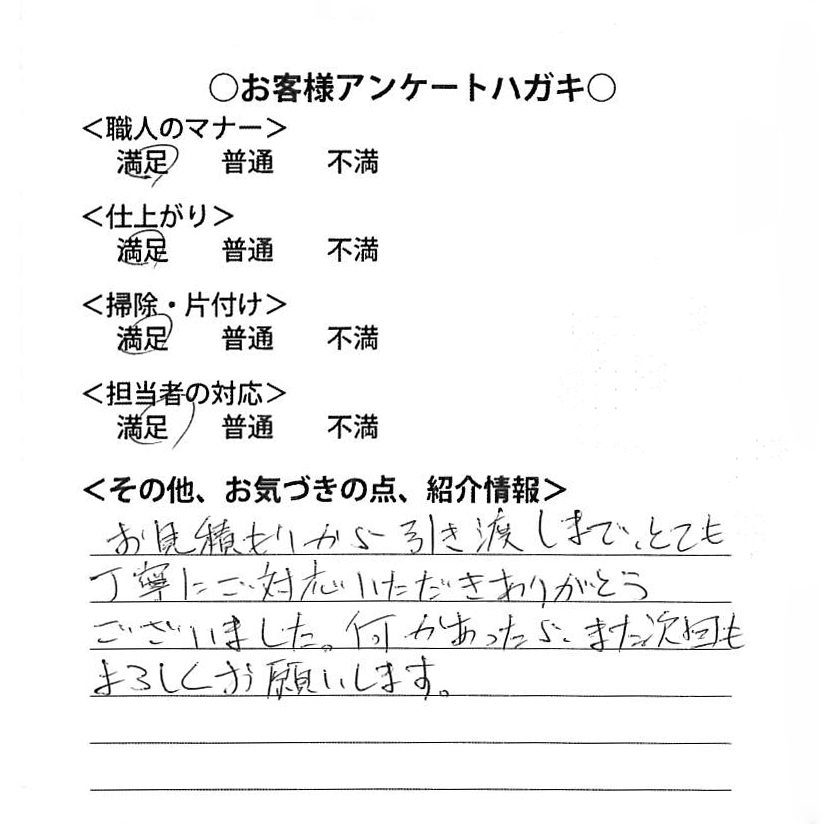 ○お客様アンケートハガキ○
＜職人のマナー＞
満足 普通 不満
＜仕上がり＞
満足 普通 不満
＜掃除・片付け＞
満足 普通 不満
＜担当者の対応＞
満足 普通 不満
＜その他、お気づきの点、紹介情報＞
お見積もりから引き渡しまで、とても
丁寧にご対応いただきありがとう
ございました。何かあったら、また次回も
よろしくお願いします。